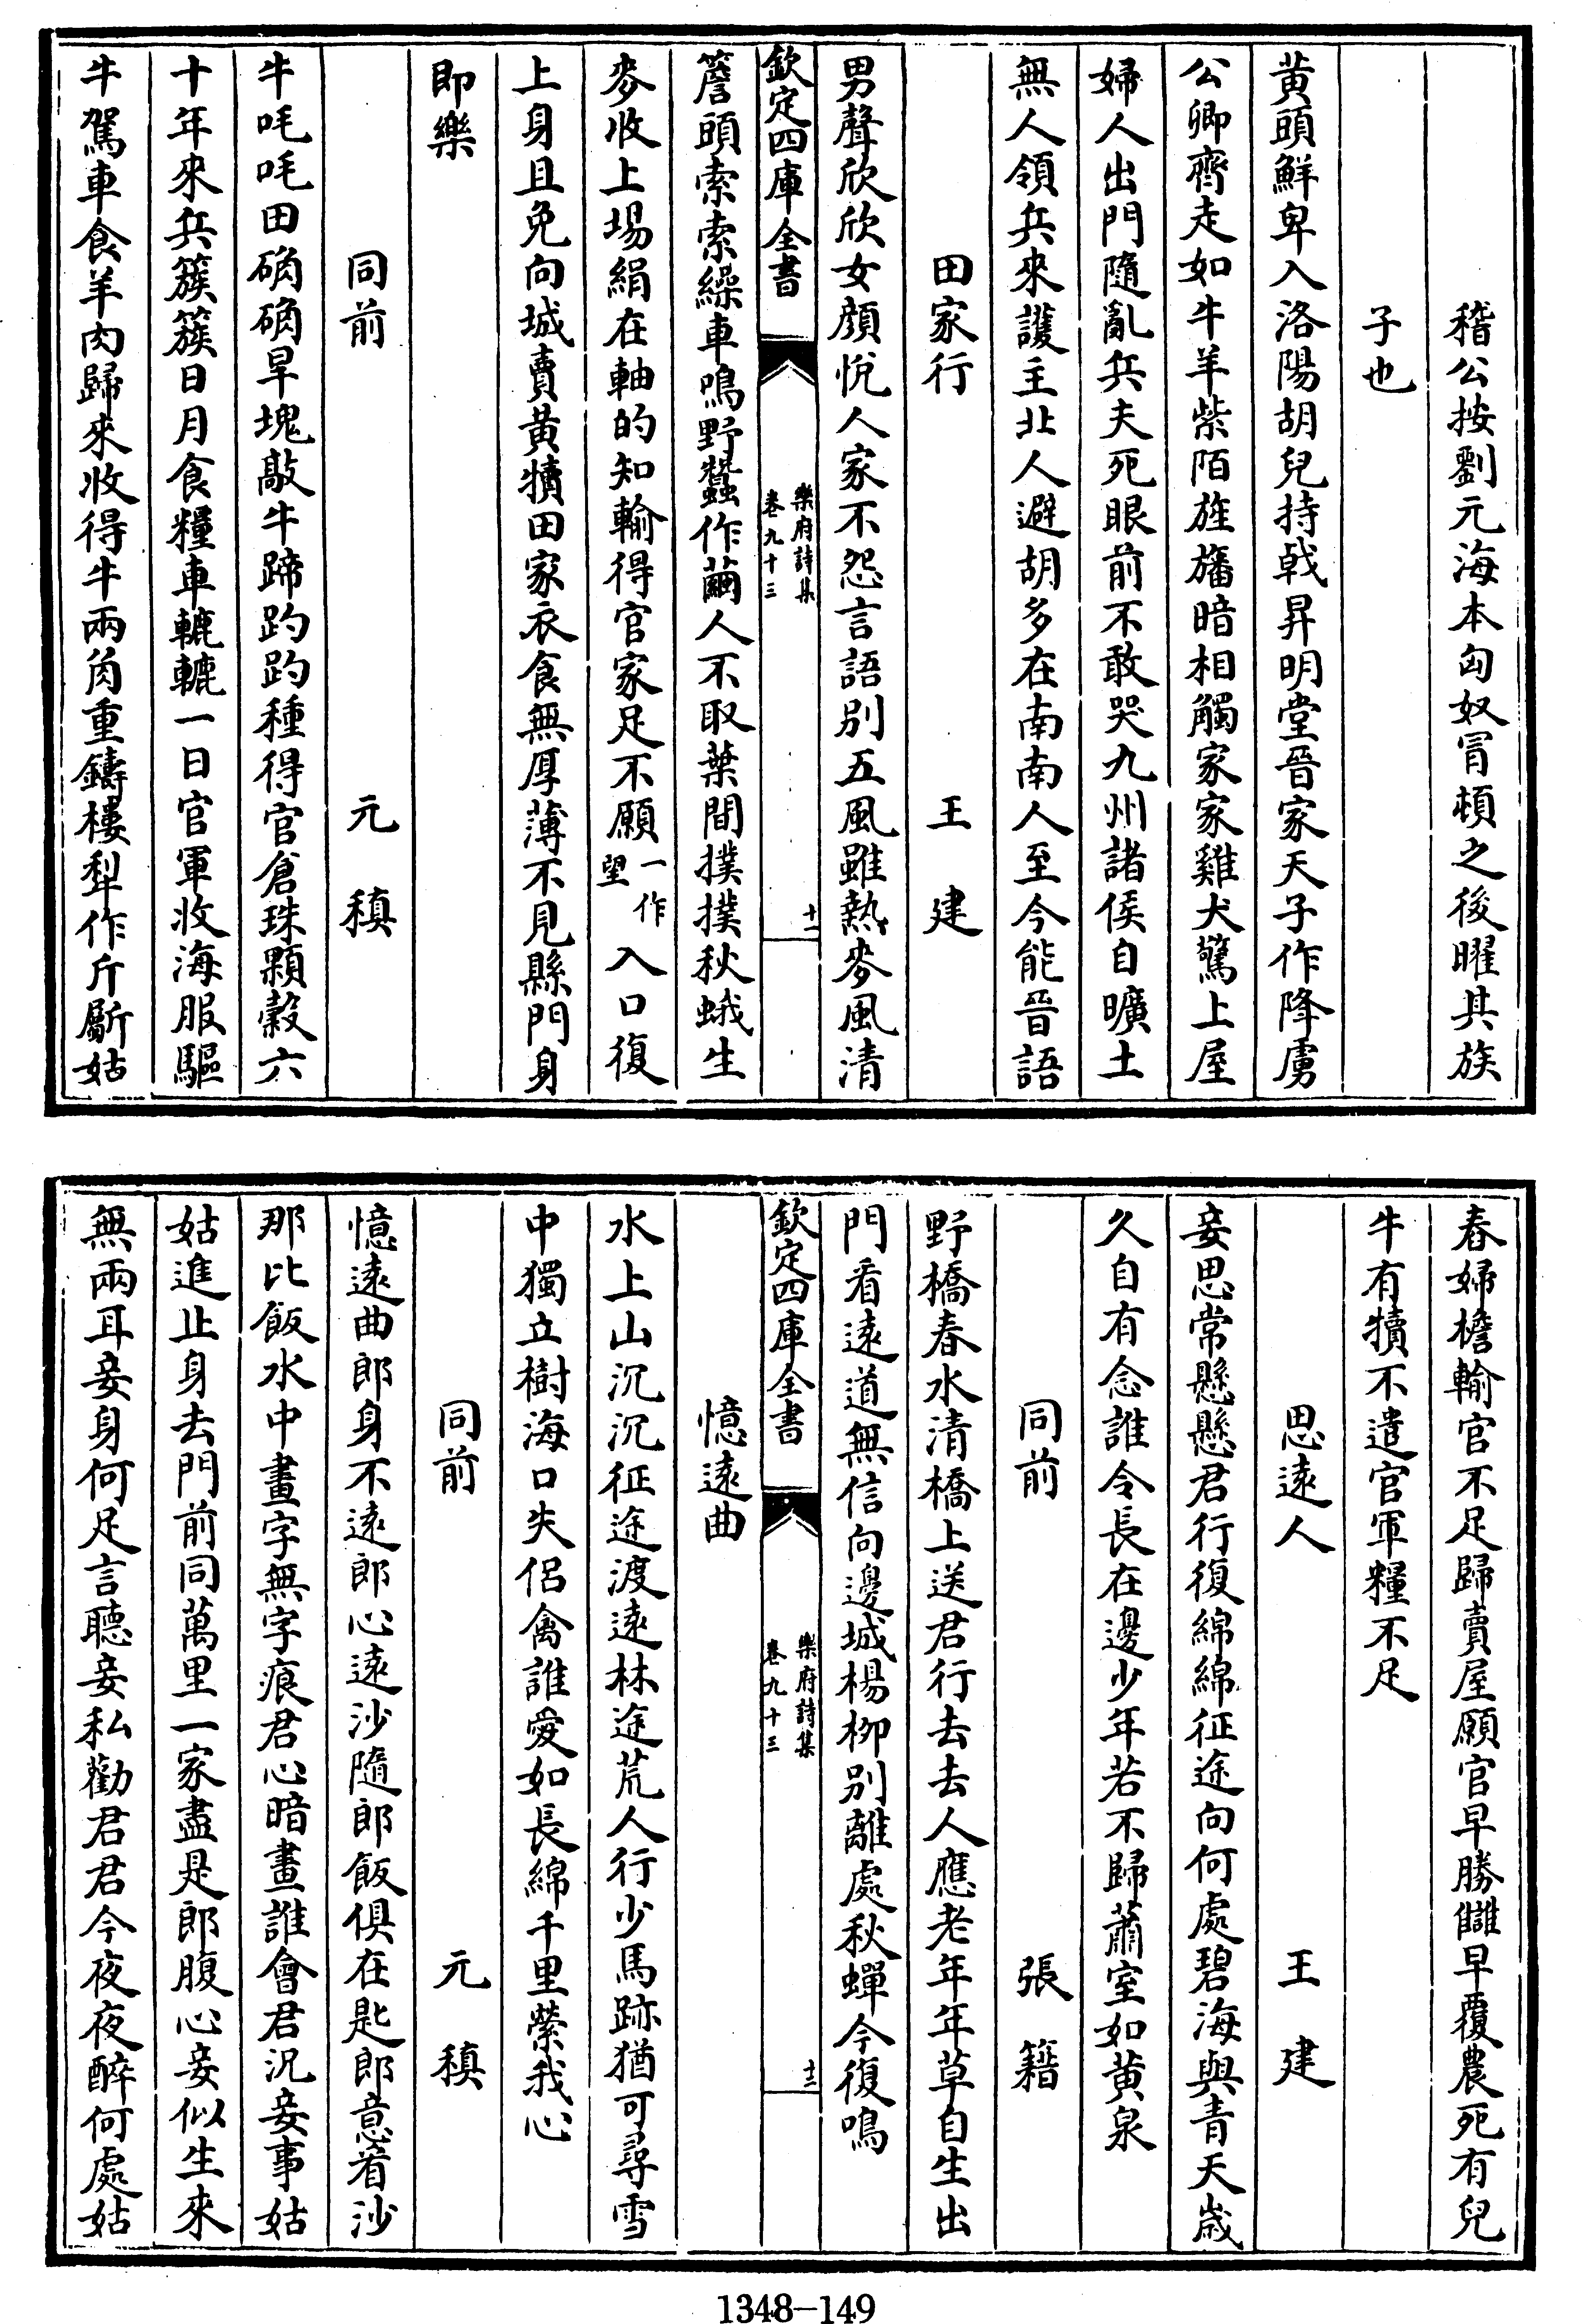 稽公按劉元海本匈奴冒頓之後曜其族
子也
黄頭鮮卑入洛陽胡兒持戟昇明堂晉家天子作降虜
公卿齊走如牛羊紫陌旌旛暗相觸家家雞犬驚上屋
婦人出門隨亂兵夫死眼前不敢哭九州諸侯自曠土
無人領兵來護主北人避胡多在南南人至今能晉語
田家行 王建
男聲欣欣女顔悅人家不怨言語别五風雖熱麥風清
欽定四庫全書 樂府詩集 卷九十三 十一
簷頭索索繰車鳴野蠶作繭人不取葉間撲撲秋蛾生
麥收上場絹在軸的知輸得官家足不願一作望入口復
上身且免向城賣黄犢田家衣食無厚薄不見縣門身
即樂
同前 元稹
牛吒吒田确确旱塊敲牛蹄趵趵種得官倉珠顆穀六
十年來兵簇簇日月食糧車轆轆一日官軍收海服驅
牛駕車食羊肉歸來收得牛兩角重鑄樓犁作斤斸姑
舂婦檐輸官不足歸賣屋願官早勝讎早覆農死有兒
牛有犢不遣官軍糧不足
思遠人 王建
妾思常懸懸君行復綿綿征途向何處碧海與青天嵗
久自有念誰令長在邊少年若不歸蘭室如黄泉
同前 張籍
野橋春水清橋上送君行去去人應老年年草自生出
門看遠道無信向邊城楊柳别離處秋蟬今復鳴
欽定四庫全書 樂府詩集 卷九十三 十二
憶遠曲
水上山沉沉征途渡遠林途荒人行少馬跡猶可尋雪
中獨立樹海口失侶禽誰愛如長綿千里縈我心
同前 元稹
憶遠曲郎身不遠郎心遠沙隨郎飯俱在匙郎意看沙
那比飯水中畫字無字痕君心暗畫誰會君況妾事姑
姑進止身去門前同萬里一家盡是郎腹心妾似生來
無兩耳妾身何足言聽妾私勸君君今夜夜醉何處姑
1348-149